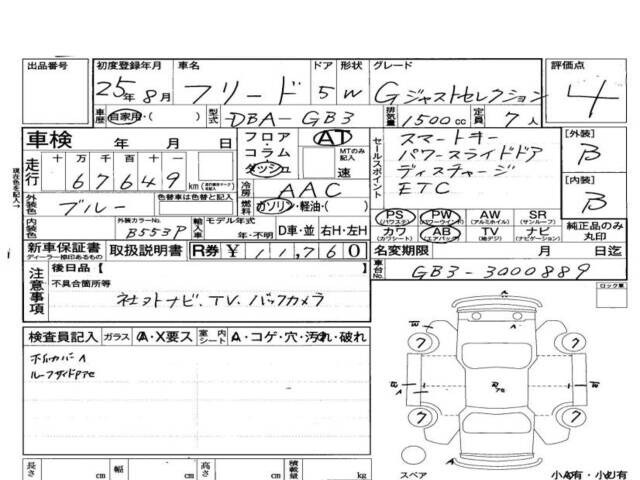 出品番号
初度登録年月
25年8月
車名
フリード
ドア
5
形状
W
グレード
Gジャストセレクション
評価点
4
車歴
自家用・( )
型式
DBA-GB3
排気量
1500cc
定員
7人
車検
年 月 日
フロア・コラム・ダッシュ
AT
MTのみ記入
速
セールスポイント
スマートキー
パワースライドドア
ディスチャージ
ETC
[外装]
B
[内装]
B
現在色を記入→
走行
十 万 千 百 十 一
67649
km
冷房
AAC
燃料
ガソリン・軽油・( )
外装色
ブルー
色替車は色替と記入
内装色
外装カラーNo.
B553P
輸入車
モデル年式
年・不明
D車・並
右H・左H
PS
(パワステ)
PW
(パワーウインド)
AW
(アルミホイル)
SR
(サンルーフ)
カワ
(カワシート)
AB
(エアバック)
TV
(地デジ)
ナビ
(ナビゲーション)
純正品のみ
丸印
新車保証書
ディーラー印あるもの
取扱説明書
R券
¥11,760
名変期限
月 日迄
車台No.
GB3-3000889
注意事項
後日品【
不具合箇所等
社外ナビ、TV、バックカメラ
ロック車
検査員記入
ガラス
A・X要ス
室内シート
A・コゲ・穴・汚れ・破れ
ホイルカバーA
7
7
7
7
スペア
長さ
cm
幅
cm
高さ
cm
積載量
kg
小A有・小U有